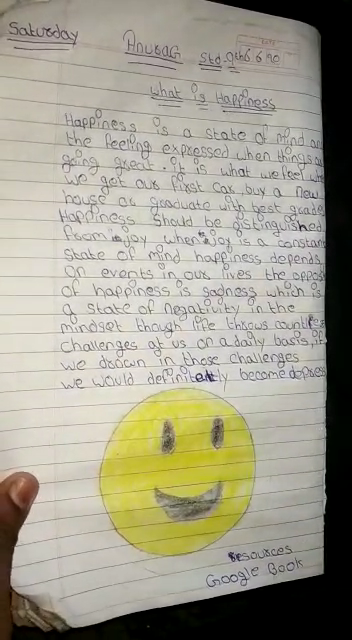 Saturday
Anurag Std 9th
DATE
What is Happiness
Happiness is a state of mind an
the feeling expressed when things a
going great. it is what we feel wh
we got our first car, buy a new
house or graduate with best grade
Happiness should be distinguished
from joy when joy is a constan
state of mind happiness depends
on events in our lives the oppos
of happiness is sadness which is
a state of negativity in the
mindset though life throws countles
challenges at us on a daily basis, if
we drown in those challenges
we would definitely become depress
Resources
Google Book